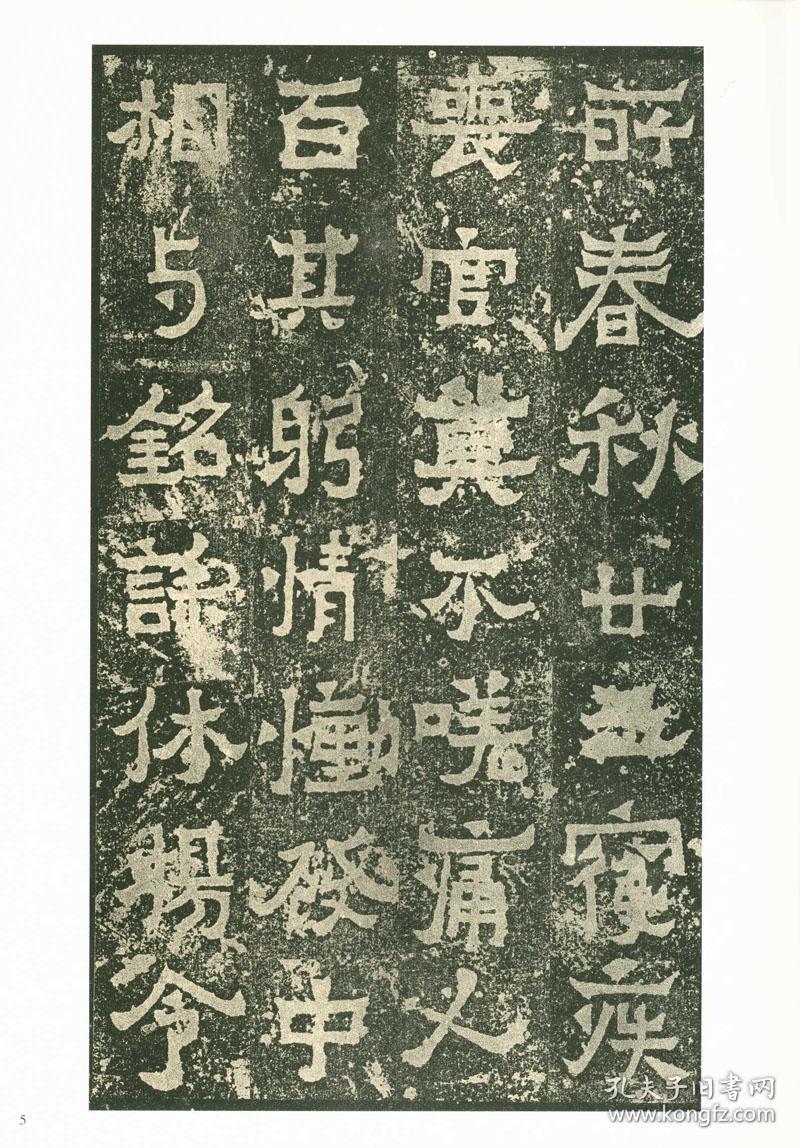 所春秋廿寑疾
喪官莫不嗟痛人
百其躬情慟發中
相与銘誄休揚令
5
孔夫子旧书网
www.kongfz.com